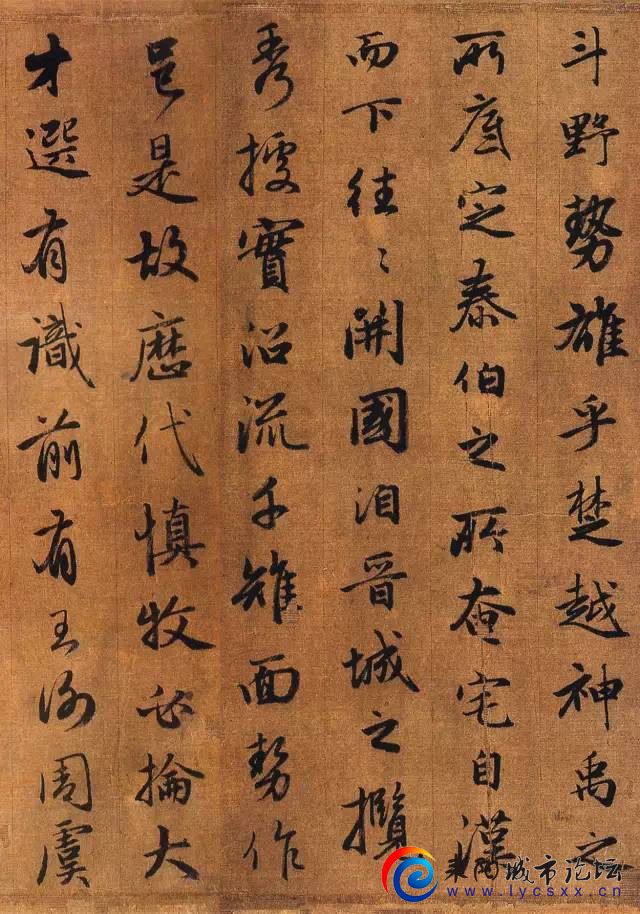 斗野勢雄乎楚越神禹之
所底定泰伯之所奄宅自漢
而下往〻開國洎晉城之攬
秀據實沿流千雉面勢作
邑是故歷代慎牧必掄大
才選有識前有王例周虞
耒阳城市论坛
www.lycsxx.cn